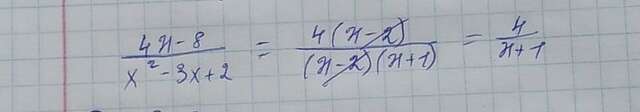 (4x-8)/(x²-3x+2) = 4(x-2)/((x-2)(x+1)) = 4/(x+1)